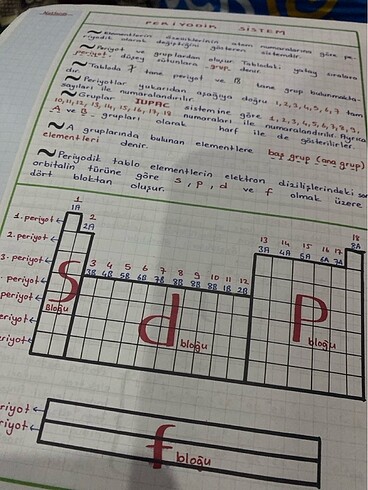 PERİYODİK SİSTEM
~ Elementlerin özelliklerinin atom numaralarına göre pe-
riyodik olarak değiştiğini gösteren sistemdir.
~ Periyot ve gruplardan oluşur. Tablodaki yatay sıralara
periyot, düşey sütunlara grup denir.
~ Tabloda 7 tane periyot ve 18 tane grup bulunmakta-
dır.
~ Periyotlar yukarıdan aşağıya doğru 1, 2, 3, 4, 5, 6, 7 tam
sayıları ile numaralandırılır.
~ Gruplar IUPAC sistemine göre 1, 2, 3, 4, 5, 6, 7, 8, 9,
10, 11, 12, 13, 14, 15, 16, 17, 18 numaraları ile numaralandırılır. Ayrıca
A ve B grupları olarak harf ile de gösterilirler.
~ A gruplarında bulunan elementlere baş grup (ana grup)
elementleri denir.
~ Periyodik tablo elementlerin elektron dizilişlerindeki son
orbitalin türüne göre s, p, d ve f olmak üzere
dört bloktan oluşur.
1 18
1A 8A
1. periyot 2 13 14 15 16 17
2A 3A 4A 5A 6A 7A
2. periyot
3. periyot 3 4 5 6 7 8 9 10 11 12
3B 4B 5B 6B 7B 8B 8B 8B 1B 2B
periyot
periyot
periyot
periyot
S bloğu
d bloğu
P bloğu
periyot
periyot
f bloğu